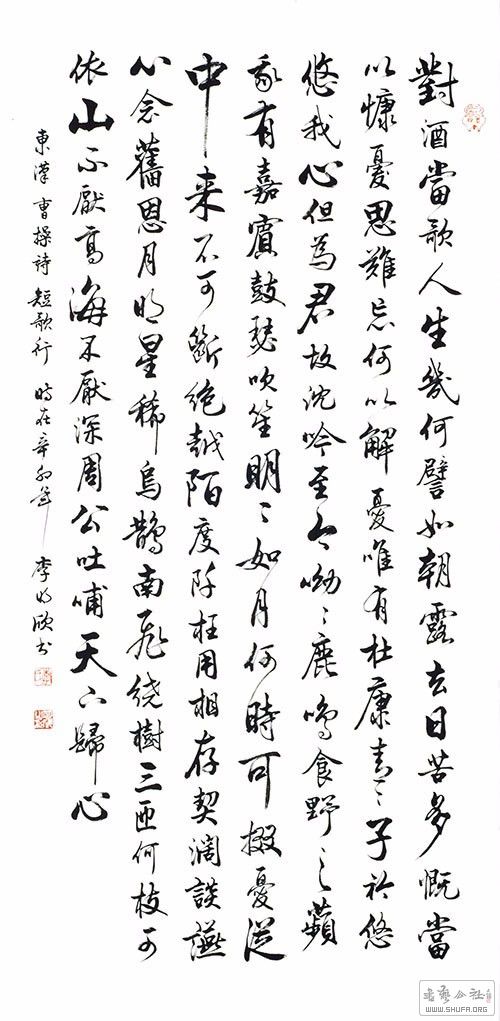 對酒當歌人生幾何譬如朝露去日苦多慨當
以慷憂思難忘何以解憂唯有杜康青〻子衿悠
悠我心但為君故沈吟至今呦〻鹿鳴食野之蘋
我有嘉賓鼓瑟吹笙明〻如月何時可掇憂從
中来不可斷絶越陌度阡枉用相存契濶談讌
心念舊恩月明星稀烏鵲南飛绕樹三匝何枝可
依山不厭高海不厭深周公吐哺天下歸心
東漢曹操詩 短歌行 時在辛卯年 李明欣书
書藝公社
WWW.SHUFA.ORG